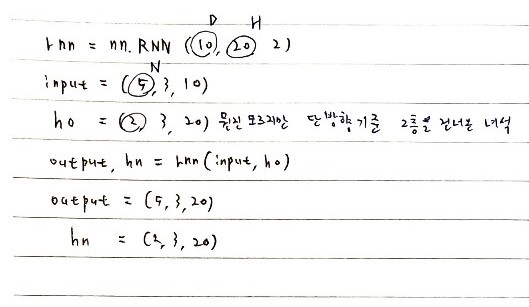 D H
rnn = nn.RNN (10, 20 2)
N
input = (5, 3, 10)
h0 = (2, 3, 20) 뭔진 모르지만 단방향기준 2층을 건너온 녀석
output, hn = rnn(input, h0)
output = (5, 3, 20)
hn = (2, 3, 20)